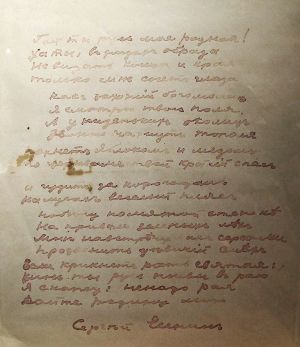 Гой ты русь моя родная!
Хаты, в ризах образа
Не видать конца и края
только синь сосет глаза
Как захожий богомолец
Я смотрю твои поля.
А у низеньких околиц
Звонко чахнут тополя
Пахнет яблоком и медом
По церквам твой кроткий спас
и гудит за корогодом
На лугах веселый пляс
Побегу по мятой стежке
На приволь зеленых лех
Мне навстречу как сережки
Прозвенит девичий смех
Если крикнет рать святая:
Кинь ты русь живи в раю
Я скажу: ненадо рая
Дайте родину мою
Сергей Есенин